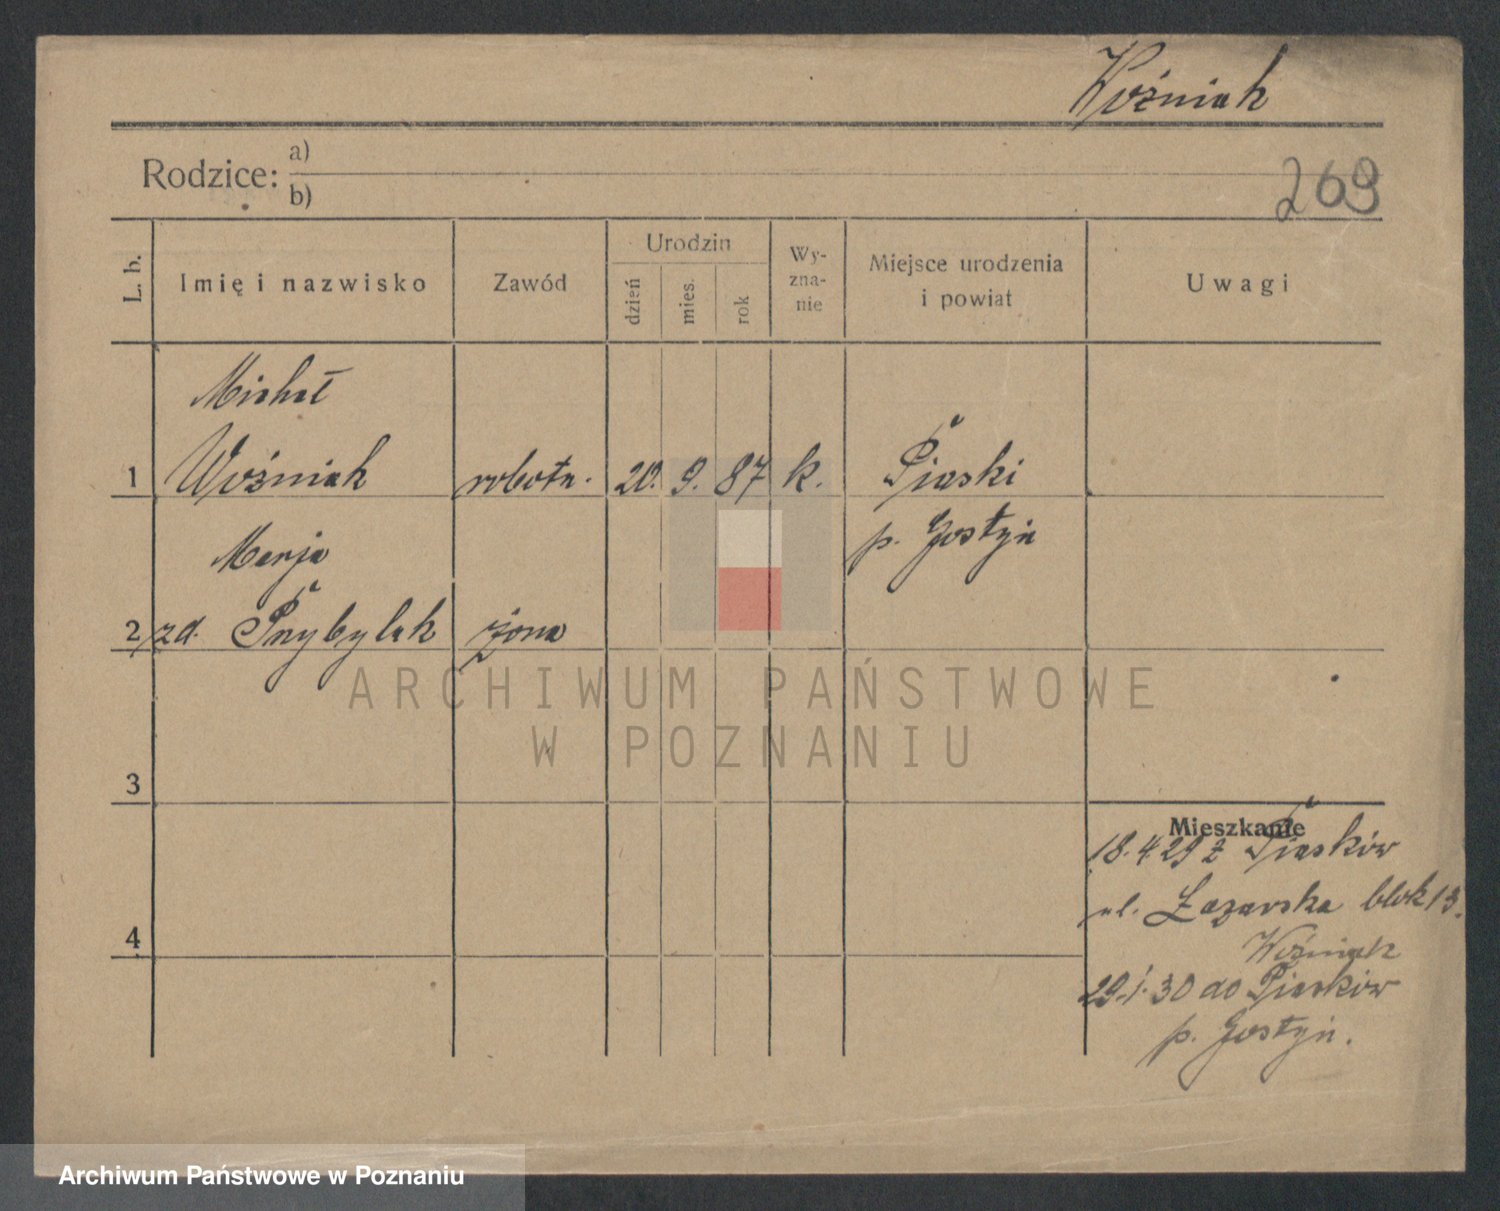 Woźniak
Rodzice: a)
b)
269
L. b.
Imię i nazwisko
Zawód
Urodzin
dzień
mies.
rok
Wy-
zna-
nie
Miejsce urodzenia
i powiat
Uwagi
Michał
1 Woźniak robotn. 20. 9. 87 k. Piaski
p. Gostyń
Marja
2 zd. Przybylak żona
ARCHIWUM PAŃSTWOWE
W POZNANIU
3
Mieszkanie
18.4.29 z Piasków
ul. Łazarska blok 13.
4
Woźniak
29.1.30 do Piasków
p. Gostyń.
Archiwum Państwowe w Poznaniu